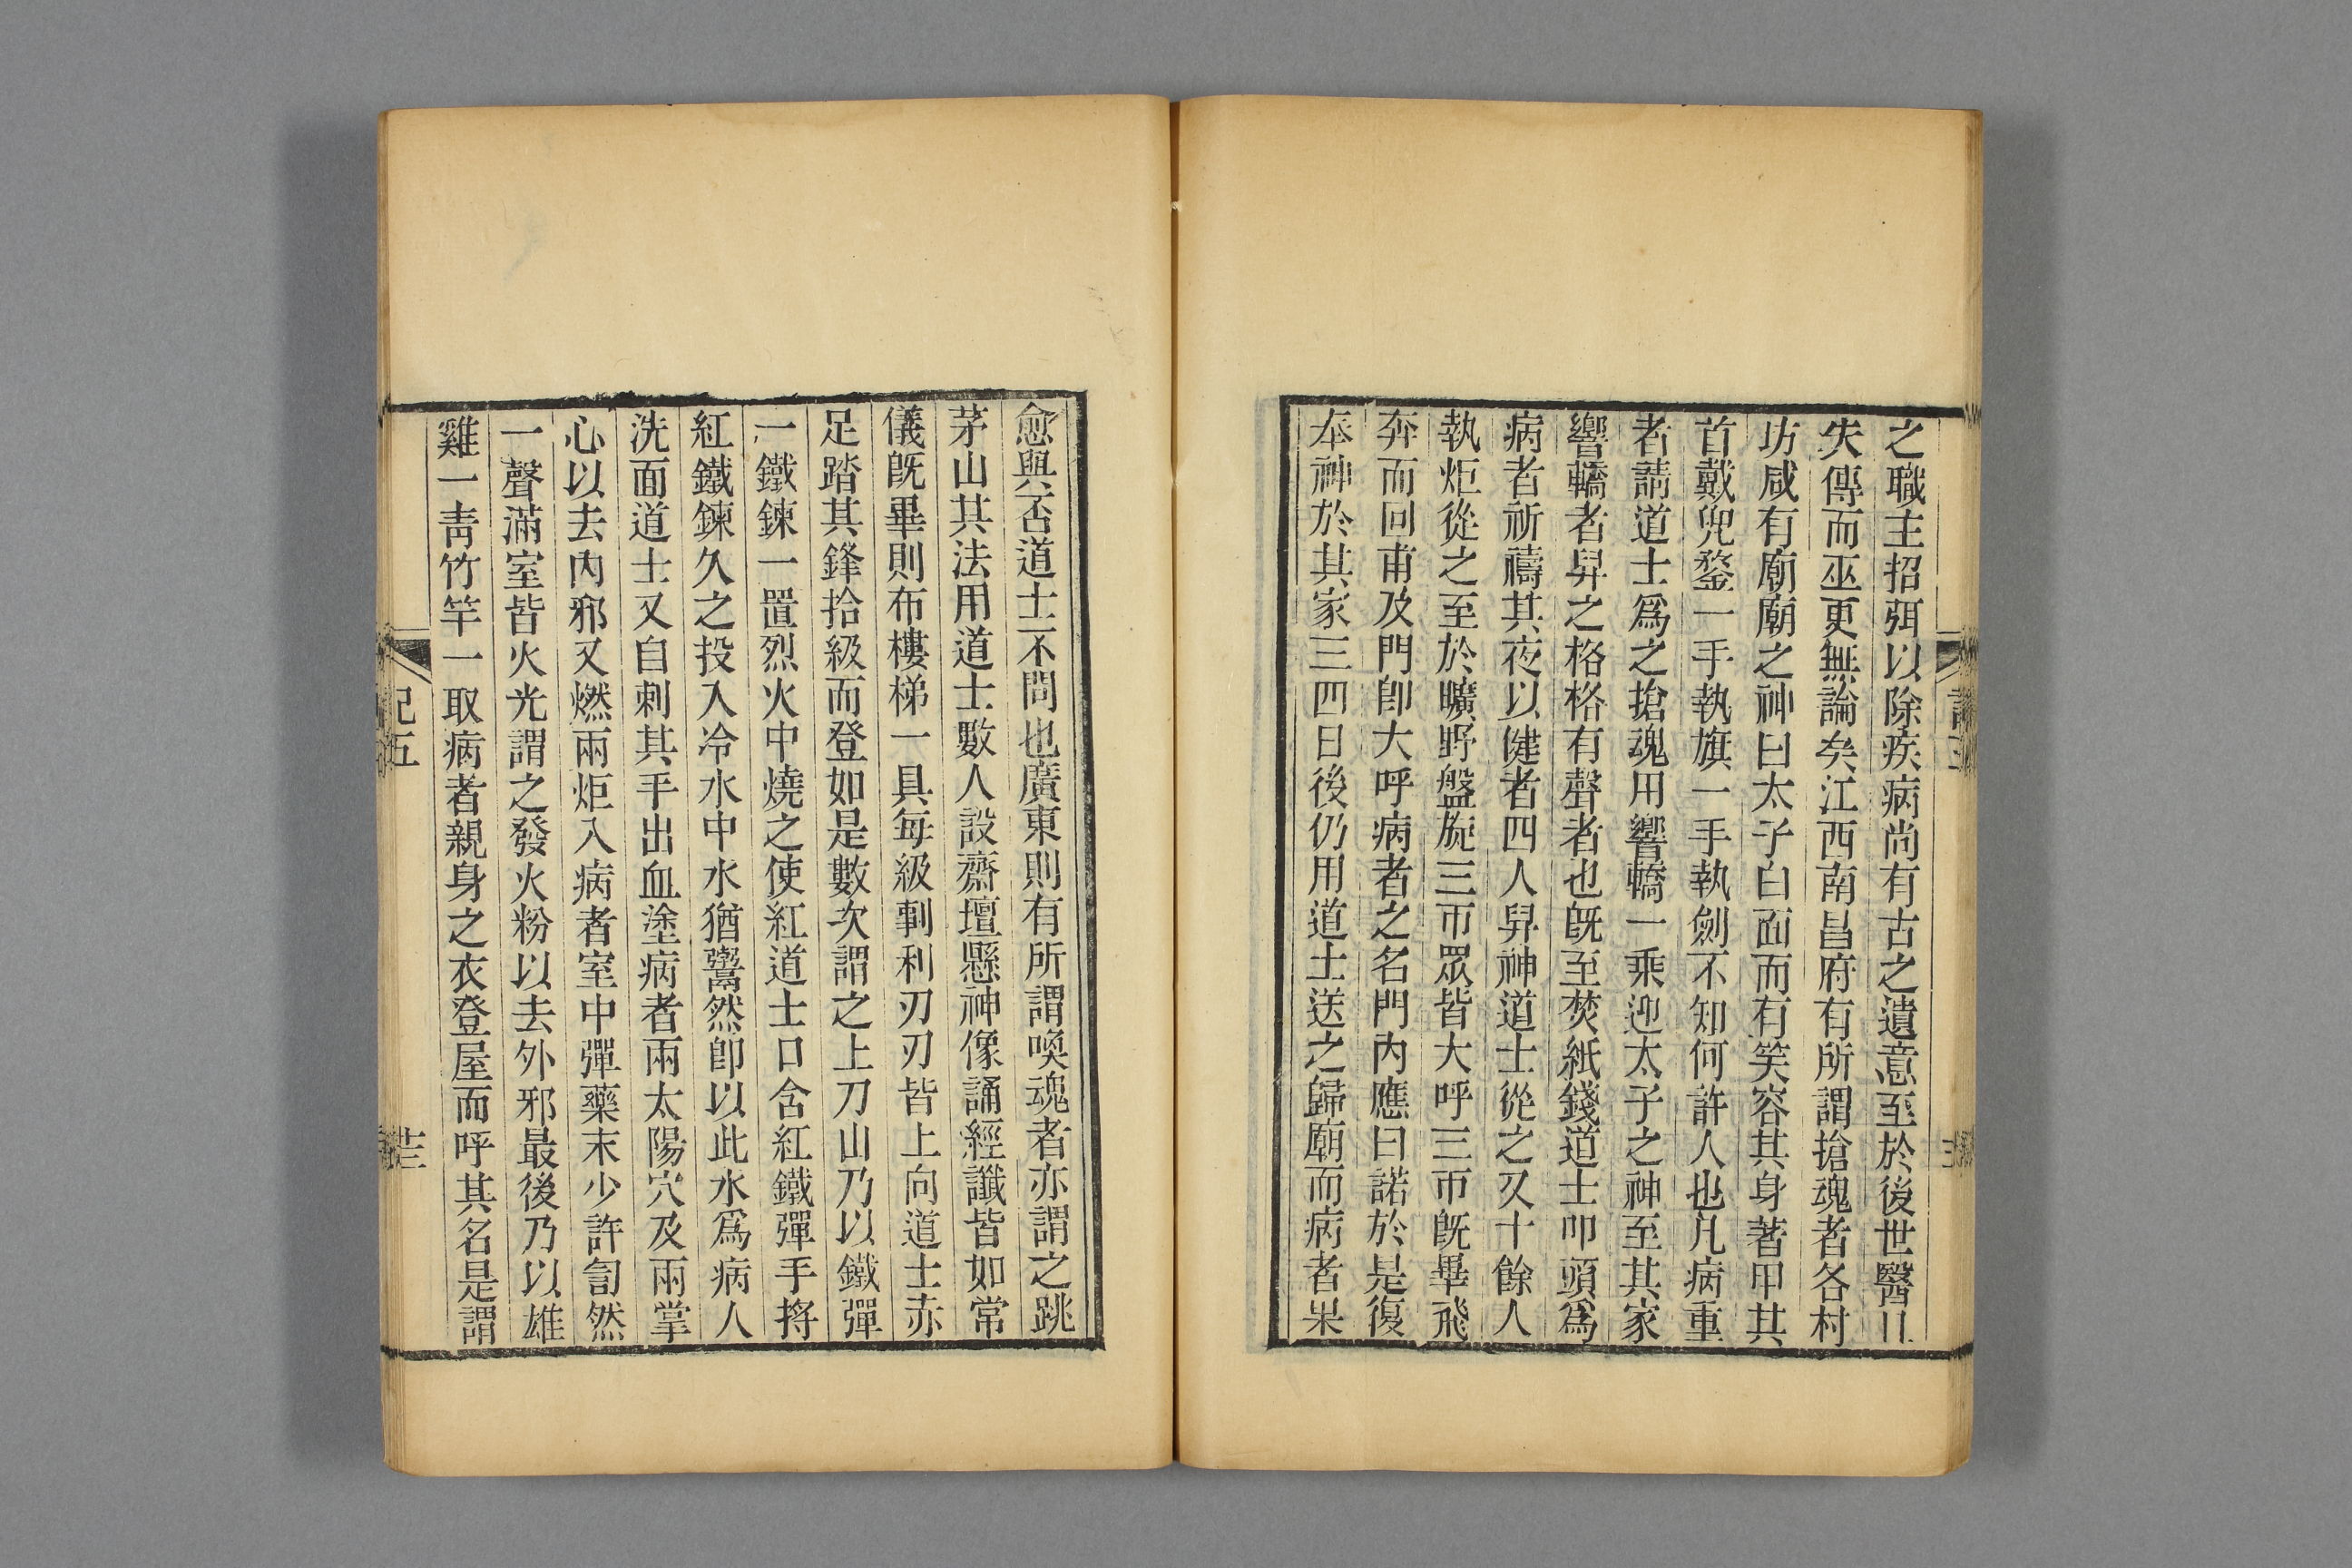 之職主招弭以除疾病尚有古之遺意至於後世醫
失傳而巫更無論矣江西南昌府有所謂搶魂者各村
坊咸有廟廟之神曰太子白面而有笑容其身著甲其
首戴兜鍪一手執旗一手執劍不知何許人也凡病重
者請道士爲之搶魂用響轎一乘迎太子之神至其家
響轎者舁之格格有聲者也旣至焚紙錢道士叩頭爲
病者祈禱其夜以健者四人舁神道士從之又十餘人
執炬從之至於曠野盤旋三帀眾皆大呼三帀旣畢飛
奔而回甫及門卽大呼病者之名門內應曰諾於是復
奉神於其家三四日後仍用道士送之歸廟而病者果
愈與否道士不問也廣東則有所謂喚魂者亦謂之跳
茅山其法用道士數人設齋壇懸神像誦經讖皆如常
儀旣畢則布樓梯一具每級剚利刃刃皆上向道士赤
足踏其鋒拾級而登如是數次謂之上刀山乃以鐵彈
一鐵鍊一置烈火中燒之使紅道士口含紅鐵彈手捋
紅鐵鍊久之投入冷水中水猶鬻然卽以此水爲病人
洗面道士又自刺其手出血塗病者兩太陽穴及兩掌
心以去內邪又燃兩炬入病者室中彈藥末少許訇然
一聲滿室皆火光謂之發火粉以去外邪最後乃以雄
雞一靑竹竿一取病者親身之衣登屋而呼其名是謂
記五